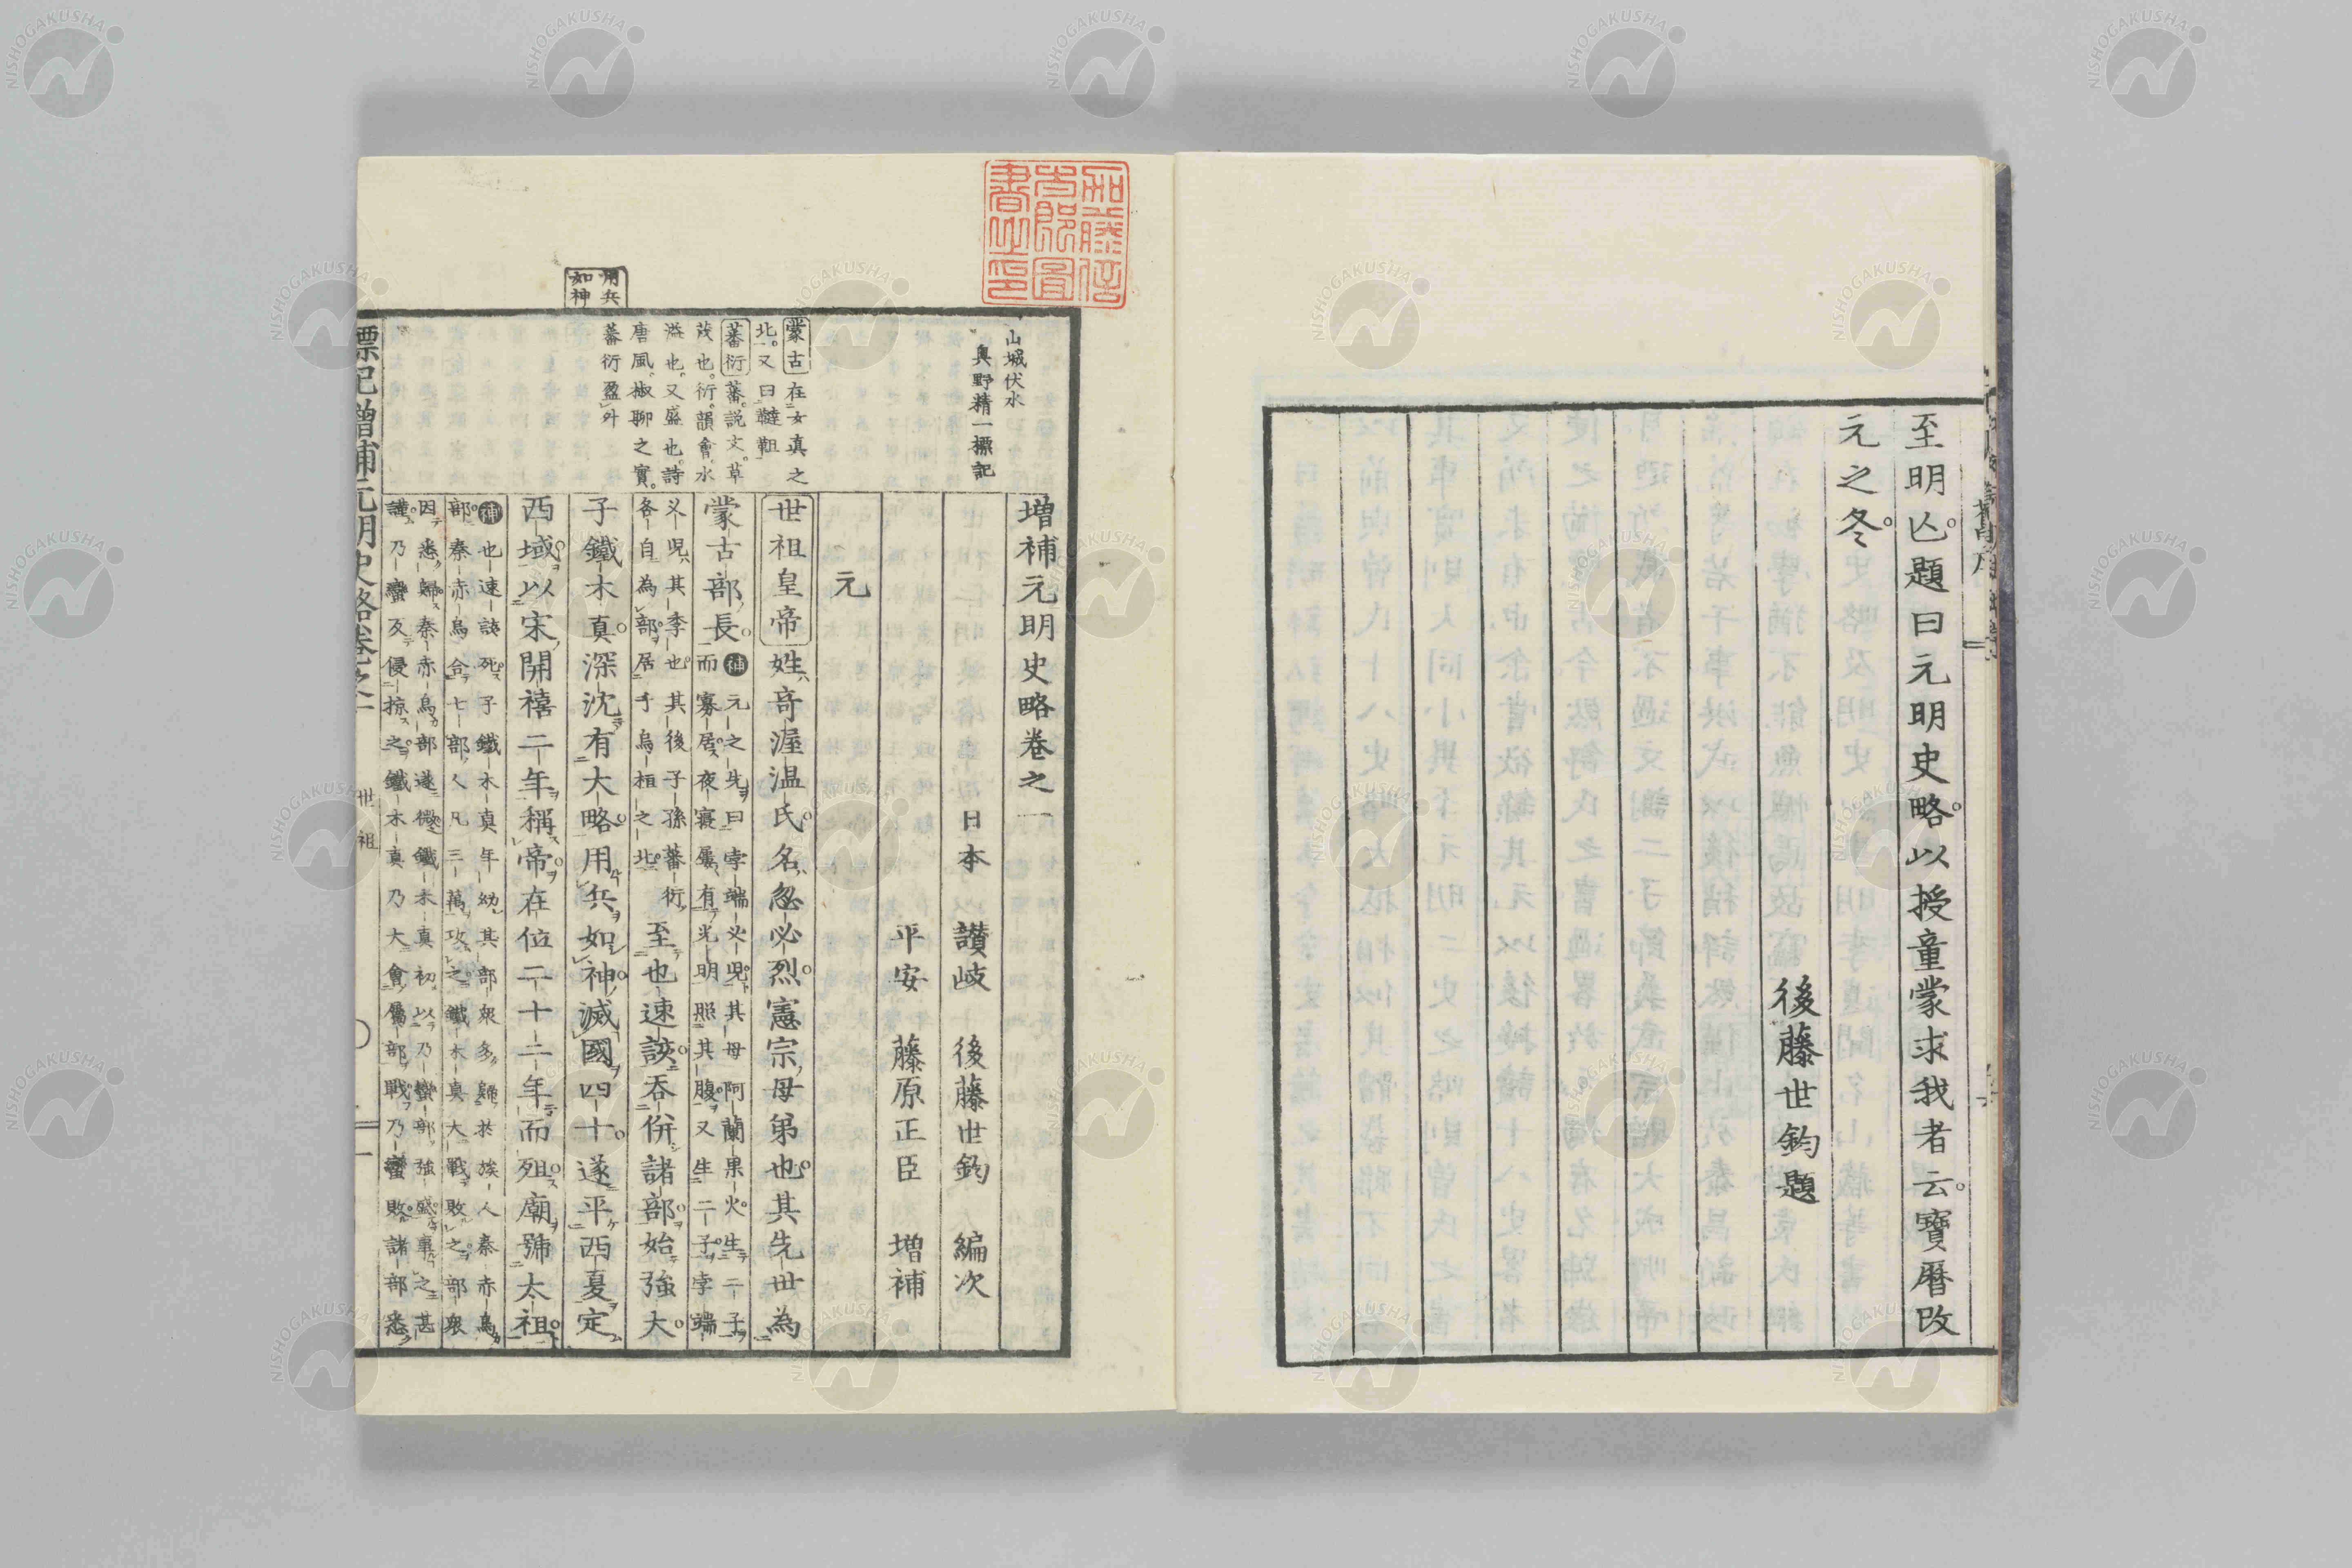 至明亾題曰元明史略以授童蒙求我者云寶曆改
元之冬
後藤世鈞題
加藤信
太郎圖
書之印
山城伏水
奧野精一標記
蒙古在女真之
北又曰韃靼
蕃衍蕃說文草
茂也衍韻會水
溢也又盛也詩
唐風椒聊之實
蕃衍盈外
用兵
如神
增補元明史略卷之一
日本 讃岐 後藤世鈞 編次
平安 藤原正臣 增補
元
世祖皇帝姓奇渥温氏名忽必烈憲宗母弟也其先世為
蒙古部長
補元之先曰孛端义児其母阿蘭果火生二子
而寡居夜寢屢有光明照其腹又生二子孛端
义児其季也其後子孫蕃衍
各自為部居于烏桓之北
至也速該吞併諸部始強大
子鐵木真深沈有大略用兵如神滅國四十遂平西夏定
西域以宋開禧二年稱帝在位二十二年而殂廟號太祖
補也速該死子鐵木真年幼其部衆多歸於族人泰赤烏
部泰赤烏合七部人凡三萬攻之鐵木真大戰敗之部衆
因悉歸泰赤烏部遂微鐵木真初以乃蠻部強盛事之甚
謹乃蠻反侵掠之鐵木真乃大會屬部戰乃蠻敗諸部悉
標記增補元明史略卷之一
世祖
一
NISHOGAKUSHA